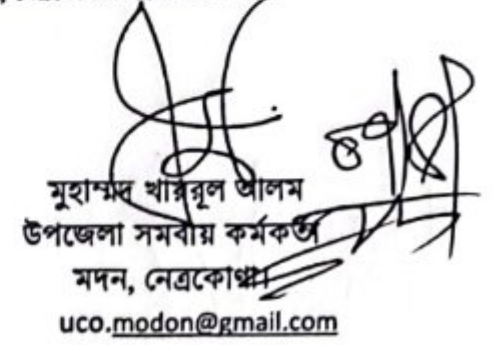 মুহাম্মদ খায়রুল আলম
উপজেলা সমবায় কর্মকর্তা
মদন, নেত্রকোণা।
uco.modon@gmail.com